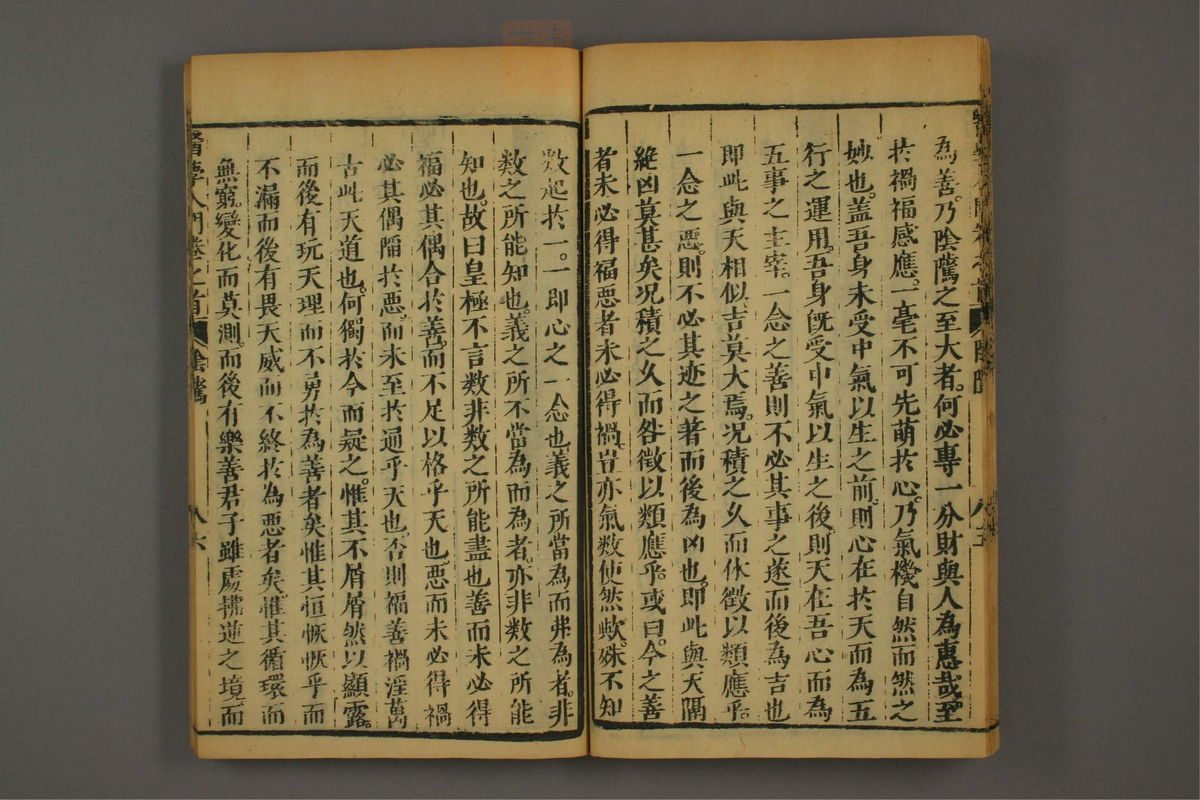 為善乃陰騭之至大者何必專一分財與人為惠哉至
於禍福感應一毫不可先萌於心乃氣機自然而然之
妙也蓋吾身未受中氣以生之前則心在於天而為五
行之運用吾身旣受中氣以生之後則天在吾心而為
五事之主宰一念之善則不必其事之遂而後為吉也
即此與天相似吉莫大焉况積之久而休徵以類應乎
一念之惡則不必其迹之著而後為凶也即此與天隔
絕凶莫甚矣况積之久而咎徵以類應乎或曰今之善
者未必得福惡者未必得禍豈亦氣數使然歟殊不知
數起於一一即心之一念也義之所當為而弗為者非
數之所能知也義之所不當為而為者亦非數之所能
知也故曰皇極不言數非數之所能盡也善而未必得
福必其偶合於善而不足以格乎天也惡而未必得禍
必其偶陷於惡而未至於通乎天也否則福善禍淫萬
古此天道也何獨於今而疑之惟其不屑屑然以顯露
而後有玩天理而不勇於為善者矣惟其恒恢恢乎而
不漏而後有畏天威而不終於為惡者矣惟其循環而
無窮變化而莫測而後有樂善君子雖處拂逆之境而
醫學入門卷之首 陰騭 八六